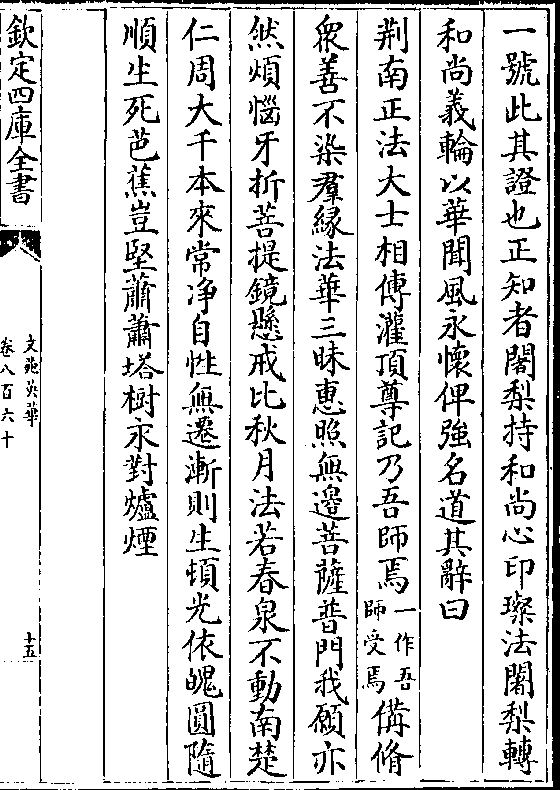 一號此其證也正知者闍梨持和尚心印璨法闍梨轉
和尚義輪以華聞風永懷俾強名道其辭曰
荆南正法大士相傳灌頂尊記乃吾師焉一作吾師受焉備脩
衆善不染羣縁法華三昧惠照無邊菩薩普門我願亦
然煩惱牙折菩提鏡懸戒比秋月法若春泉不動南楚
仁周大千本來常净自性無遷漸則生頓光依魄圓隨
順生死芭蕉豈堅蕭蕭塔樹永對爐煙
欽定四庫全書
文苑英華
卷八百六十
十五